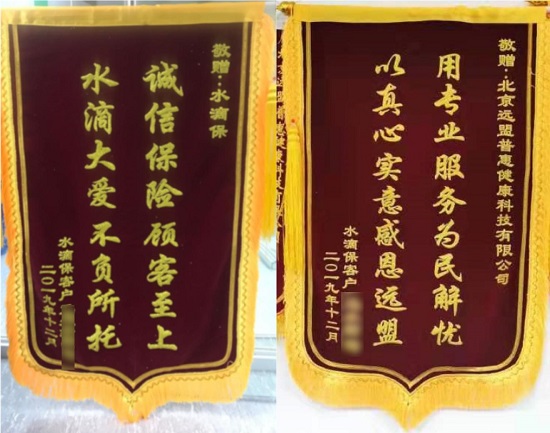 敬赠：水滴保
诚信保险顾客至上
水滴大爱不负所托
水滴保客户
二〇一九年十二月
敬赠：北京远盟普惠健康科技有限公司
用专业服务为民解忧
以真心实意感恩远盟
水滴保客户
二〇一九年十二月